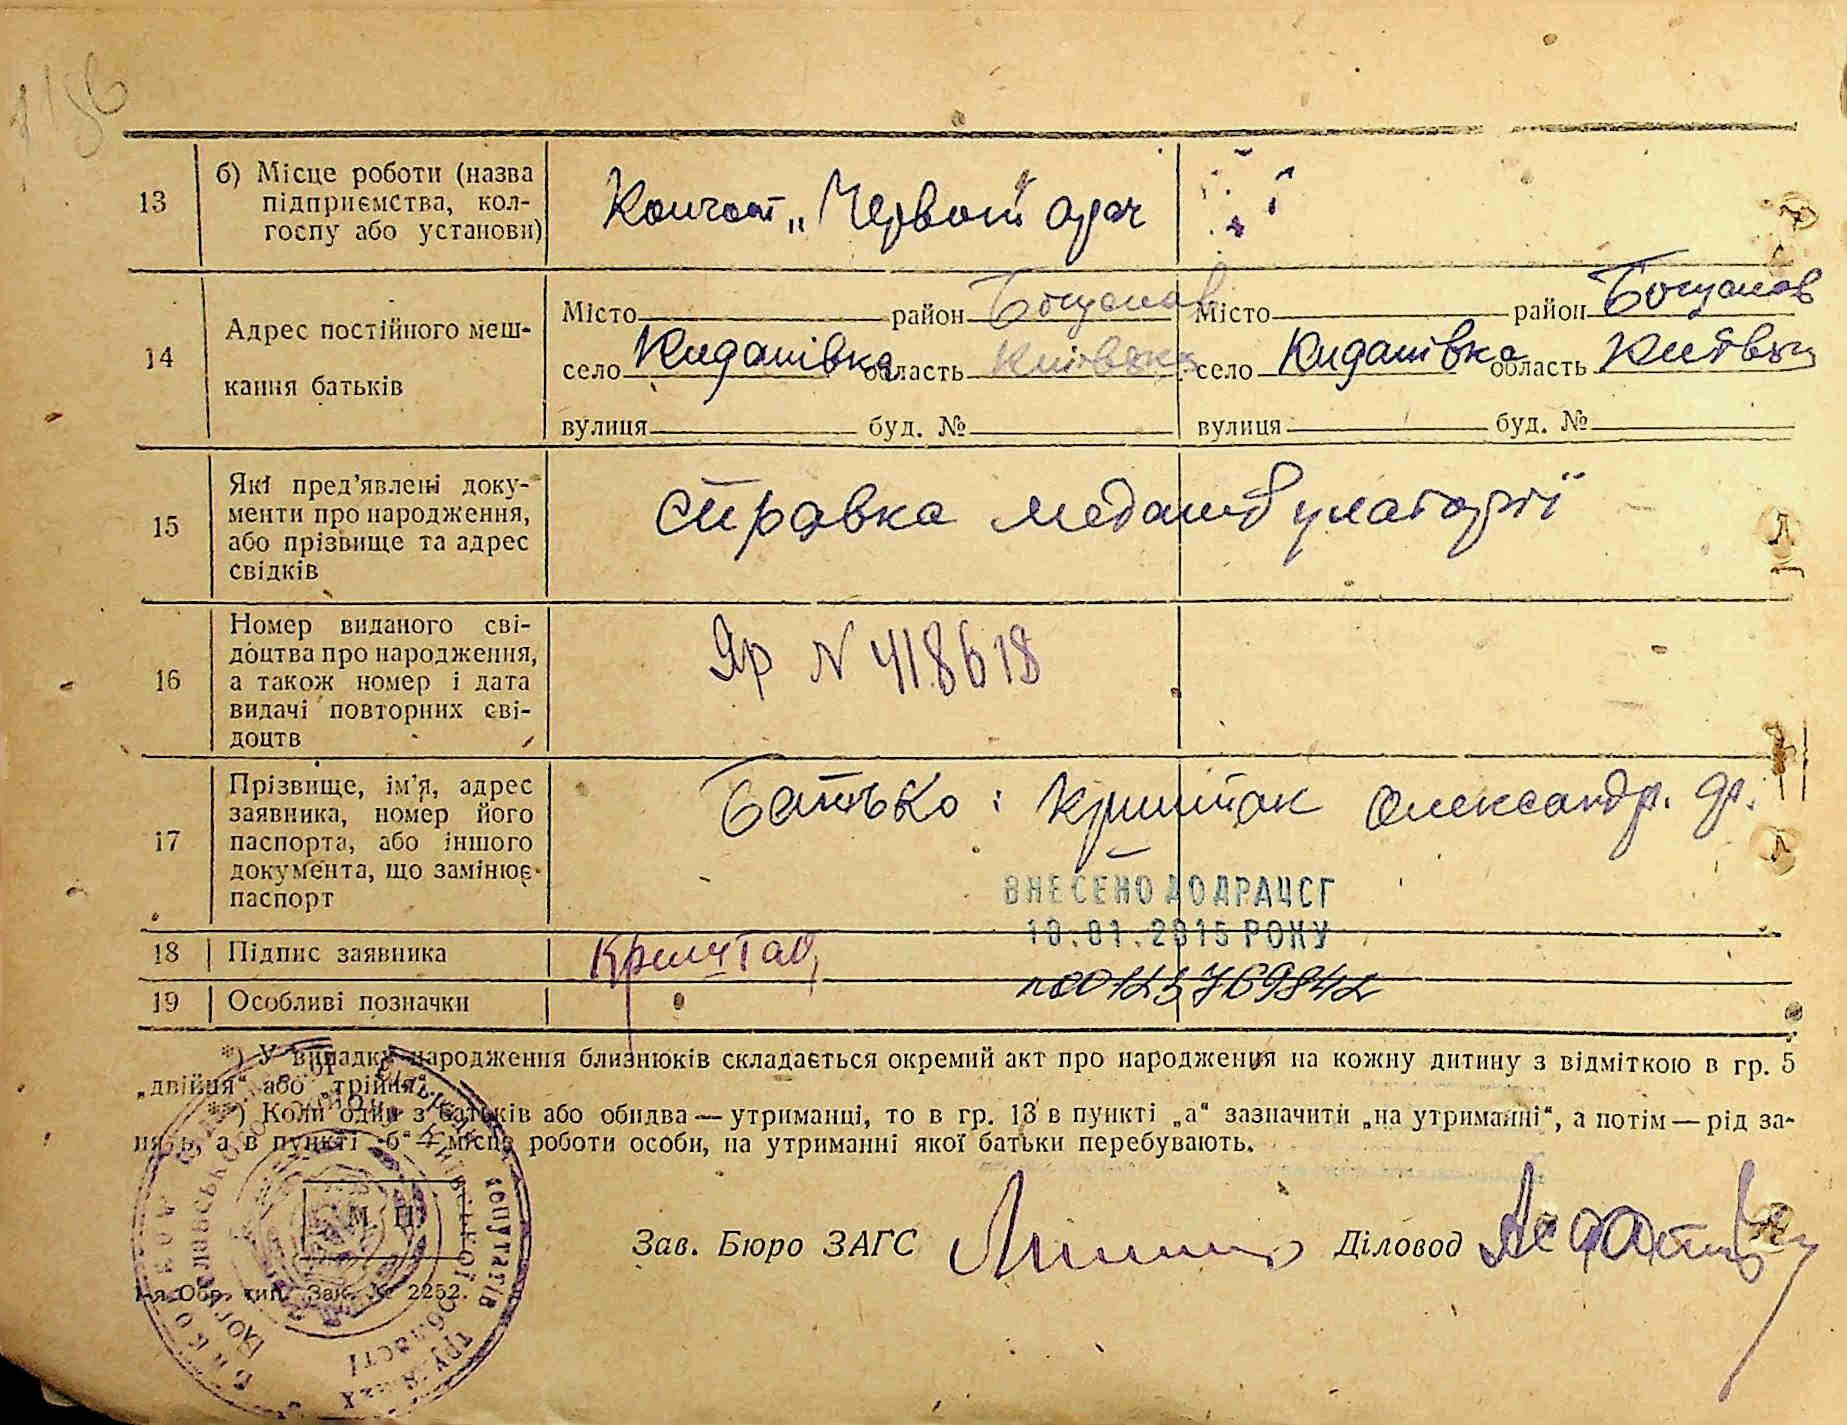 1156
13 б) Місце роботи (назва
підприємства, кол-
госпу або установи)
Колгосп „Червоний орач
14 Адрес постійного меш-
кання батьків
Місто район Богуслав
село Кидашівка область Київська
вулиця буд. №
Місто район Богуслав
село Кидашівка область Київськ
вулиця буд. №
15 Які пред'явлені доку-
менти про народження,
або прізвище та адрес
свідків
справка медамбулаторії
16 Номер виданого сві-
доцтва про народження,
а також номер і дата
видачі повторних сві-
доцтв
Яр N 418618
17 Прізвище, ім'я, адрес
заявника, номер його
паспорта, або іншого
документа, що замінює
паспорт
Батько: Криштак Олександр.
ВНЕСЕНО ДО ДРАЦСГ
10.01.2015 РОКУ
18 Підпис заявника
19 Особливі позначки
*) У випадку народження близнюків складається окремий акт про народження на кожну дитину з відміткою в гр. 5
„двійня“ або „трійня“.
**) Коли один з батьків або обидва — утриманці, то в гр. 13 в пункті „а“ зазначити „на утриманні“, а потім — рід за-
нять, а в пункті „б“ — місце роботи особи, на утриманні якої батьки перебувають.
М. П.
Зав. Бюро ЗАГС
Діловод
1-я Обр. тип. Зак. № 2252.